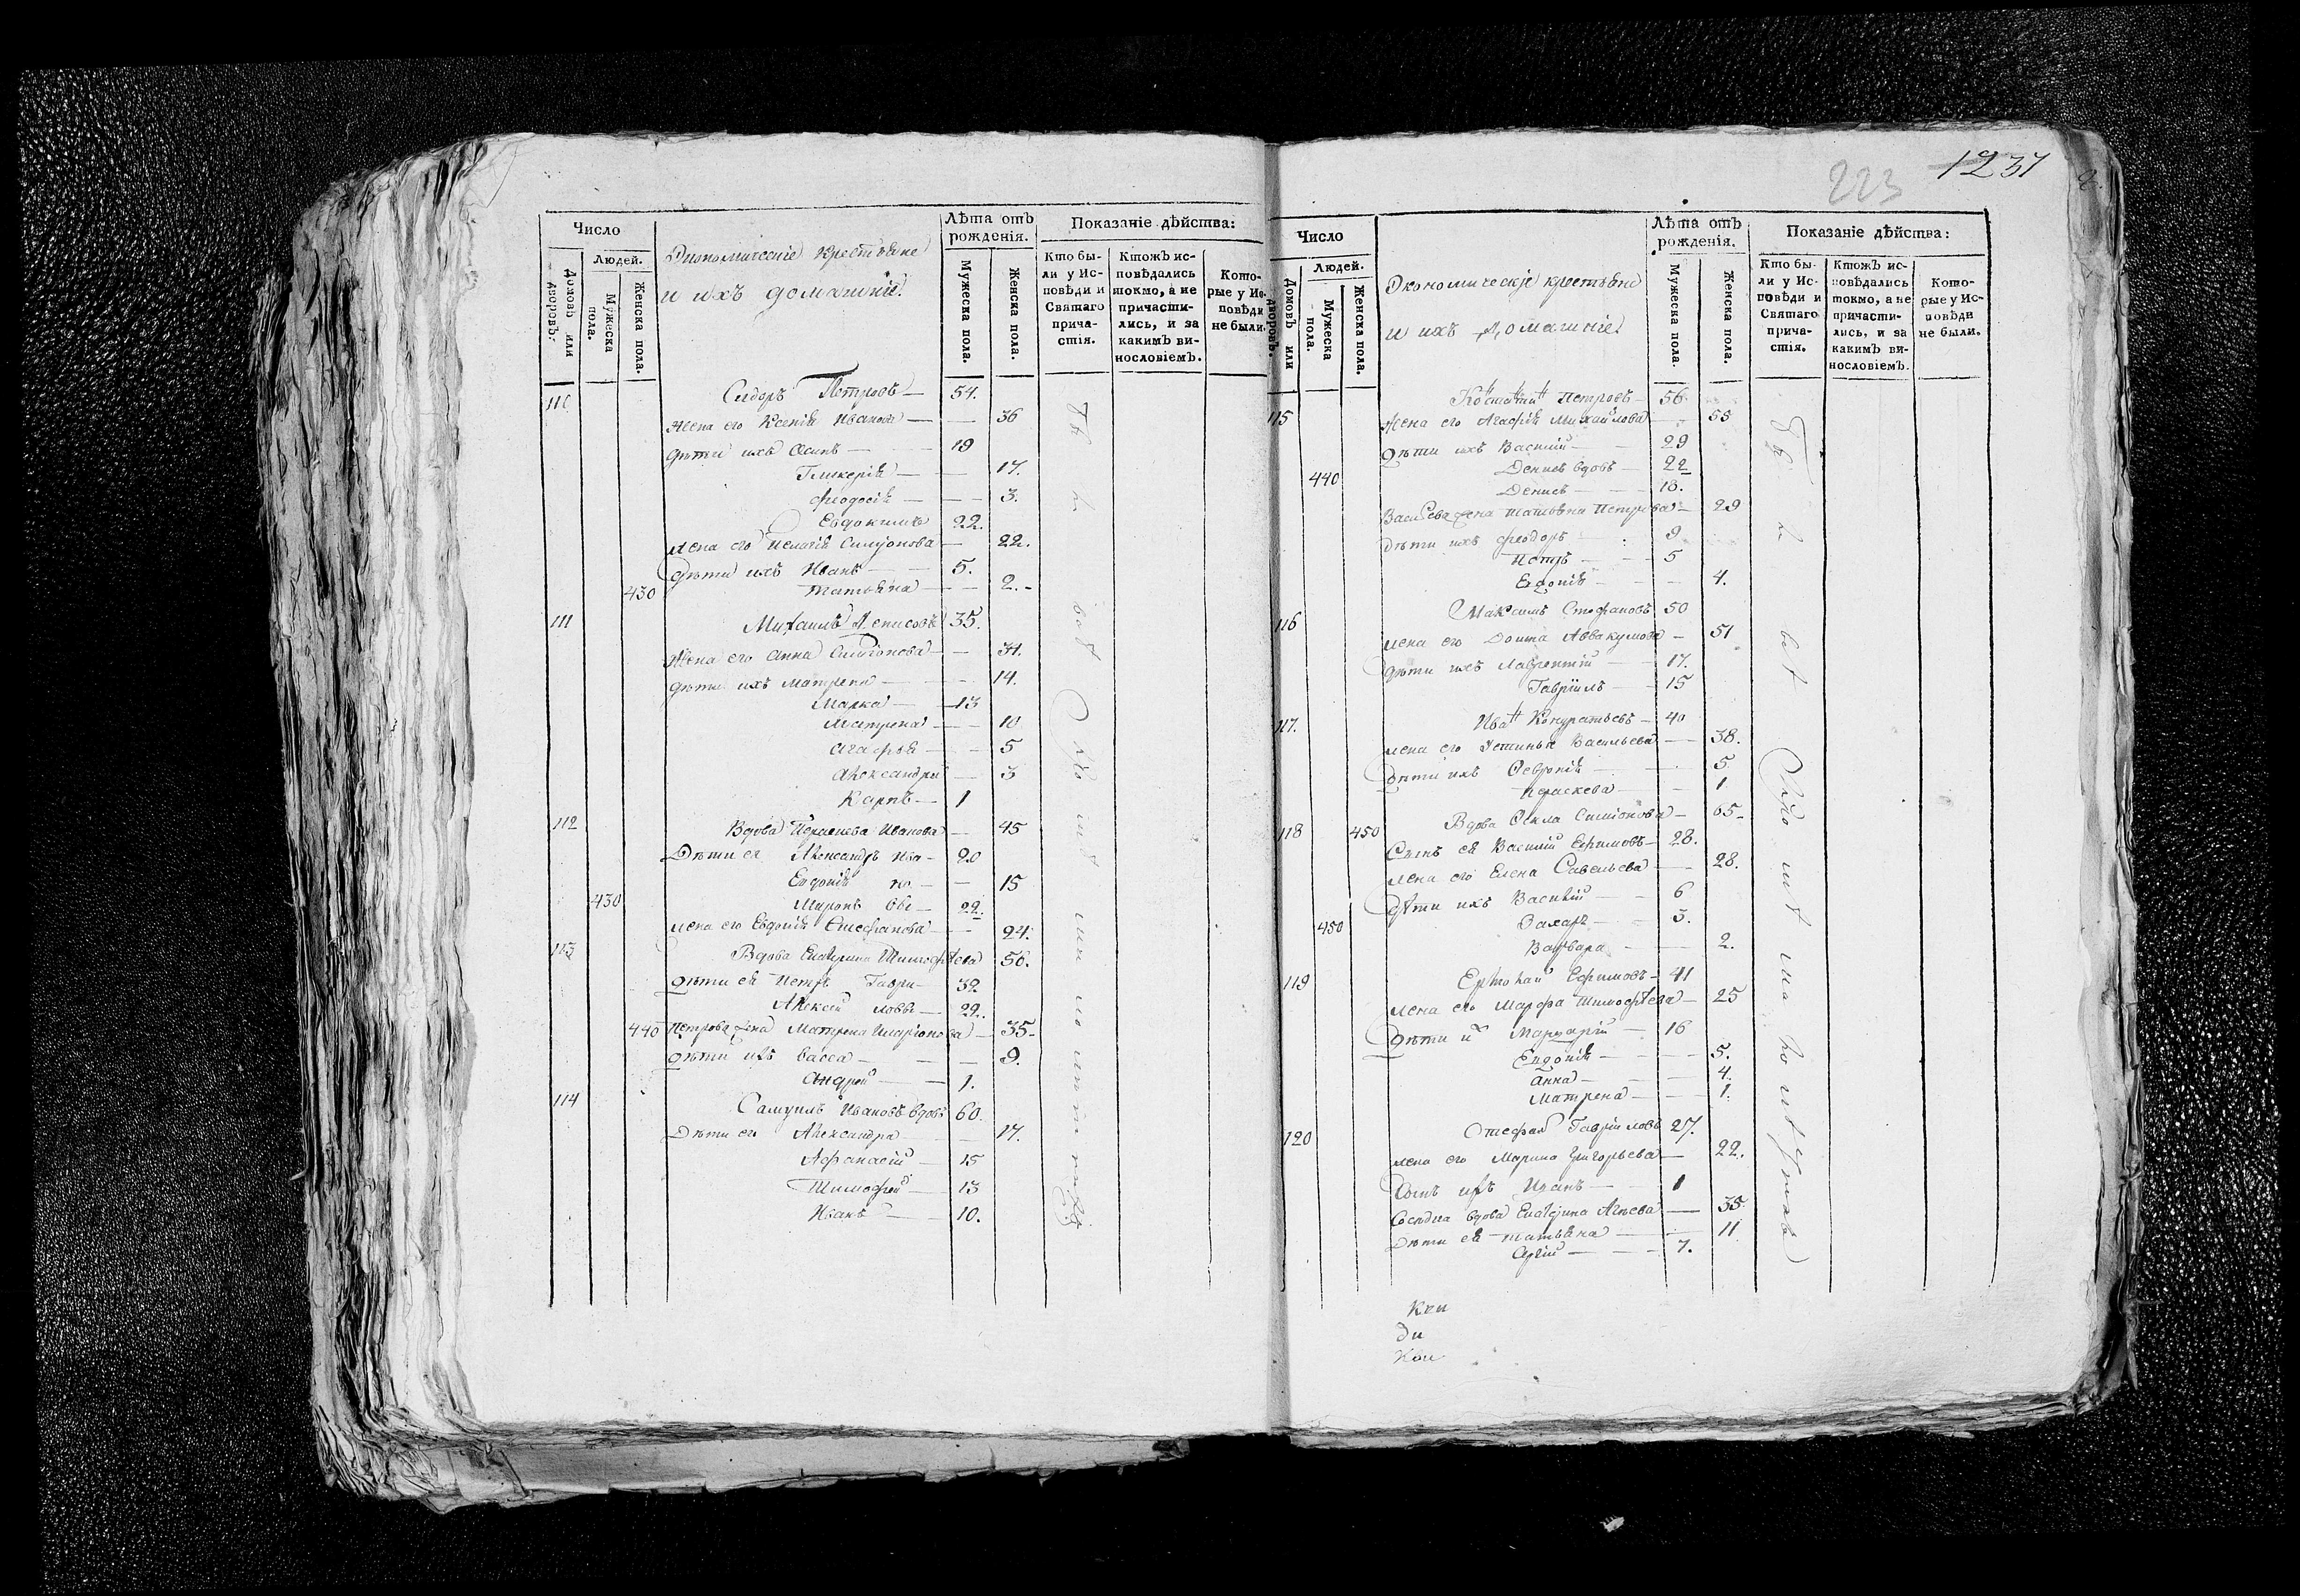 Число
Людей.
Домовъ или дворовъ.
Мужеска пола.
Женска пола.
Экономическіе крестьяне
и ихъ домашніе.
Лѣта отъ рожденія.
Мужеска пола.
Женска пола.
Показаніе дѣйства:
Кто были у Исповѣди и Святаго причастія.
Ктожъ исповѣдались токмо, а не причастились, и за какимъ винословіемъ.
Которые у Исповѣди не были.
110 Сидоръ Петровъ — 54.
Жена его Ксенія Иванова — 36
Дѣти ихъ Осипъ — 19
Гликерія — 17.
Феодосія — 3.
Евдокимъ 22.
Жена его Пелагія Симіонова — 22.
Дѣти ихъ Иванъ — 5.
430 Татьяна — 2.
111 Михаилъ Денисовъ 35.
Жена его Анна Симіонова — 34.
Дѣти ихъ Матрена — 14.
13
Матрена — 10
Агафья — 5
Александра — 3
Карпъ — 1
112 Вдова Параскева Иванова — 45
Дѣти ея Александръ Ива- 20
Евдокія — 15
430 Миронъ вы — 22.
Жена его Евдокія Стефанова — 24.
113 Вдова Екатерина Тимофѣева 56.
Дѣти ея Петръ Гаври- 32
Алексей ловы — 22.
440 Петрова жена Матрена Иларіонова — 35.
Дѣти ихъ Васса — 9.
Андрей — 1.
114 Самуилъ Ивановъ вдовъ 60.
Дѣти его Александра — 17.
Афанасій — 15
Тимофей — 13
Иванъ — 10.
223
1237
Число
Людей.
Домовъ или дворовъ.
Мужеска пола.
Женска пола.
Экономическіе крестьяне
и ихъ домашніе.
Лѣта отъ рожденія.
Мужеска пола.
Женска пола.
Показаніе дѣйства:
Кто были у Исповѣди и Святаго причастія.
Ктожъ исповѣдались токмо, а не причастились, и за какимъ винословіемъ.
Которые у Исповѣди не были.
115 Петровъ — 56.
Жена его Агафія Михайлова 55
Дѣти ихъ Василій — 29
440 Денисъ вдовъ — 22
Денисъ — 18.
Васильева жена Татьяна Петрова — 29
Дѣти ихъ Феодоръ 9
Петръ — 5
Евдокія — 4.
116 Максимъ Стефановъ 50
Жена его Аввакумова — 51
Дѣти ихъ Лаврентій — 17.
Гавріилъ — 15
117. Иванъ Кондратьевъ — 40
Жена его Устинья Васильева — 38.
Дѣти ихъ Февронія — 5
Параскева — 1
118 450 Вдова Фекла Симіонова — 65
Сынъ ея Василій Ефимовъ — 28.
Жена его Елена Савельева — 28.
Дѣти ихъ Василій — 6
450 Захаръ — 3.
Варвара — 2.
119 Ефимовъ — 41
Жена его Марфа Тимофѣева — 25
Дѣти ихъ — 16
Евдокія — 5.
Анна — 4.
Матрена — 1.
120 Стефанъ Гавріиловъ 27.
Жена его Марина Григорьева — 22.
Сынъ ихъ Иванъ — 1
вдова Екатерина — 35
Дѣти ея Татьяна — 11
Сергій — 7.